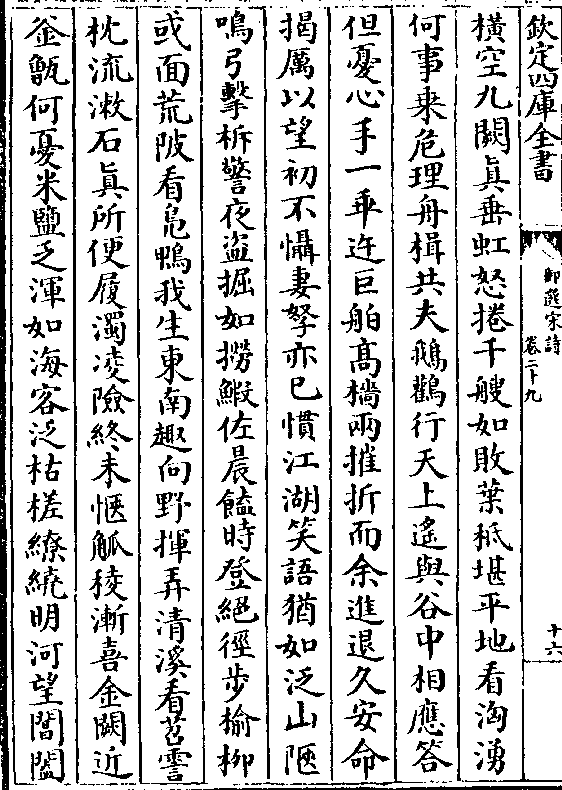 欽定四庫全書
御選宋詩
卷二十九
十六
橫空九闕真垂虹怒捲千艘如敗葉秖堪平地看洶湧
何事乗危理舟楫共夫鵝鸛行天上遙與谷中相應答
但憂心手一乖迕巨舶髙檣兩摧折而余進退久安命
揭厲以望初不懾妻孥亦已慣江湖笑語猶如泛山陿
鳴弓擊柝警夜盗掘如撈鰕佐晨饁時登絕徑步榆柳
或面荒陂看鳬鴨我生東南趣向野揮弄清溪看苕霅
枕流漱石真所便履濁凌險終未愜觚稜漸喜金闕近
釜甑何憂米鹽乏渾如海客泛枯槎繚繞明河望閶闔